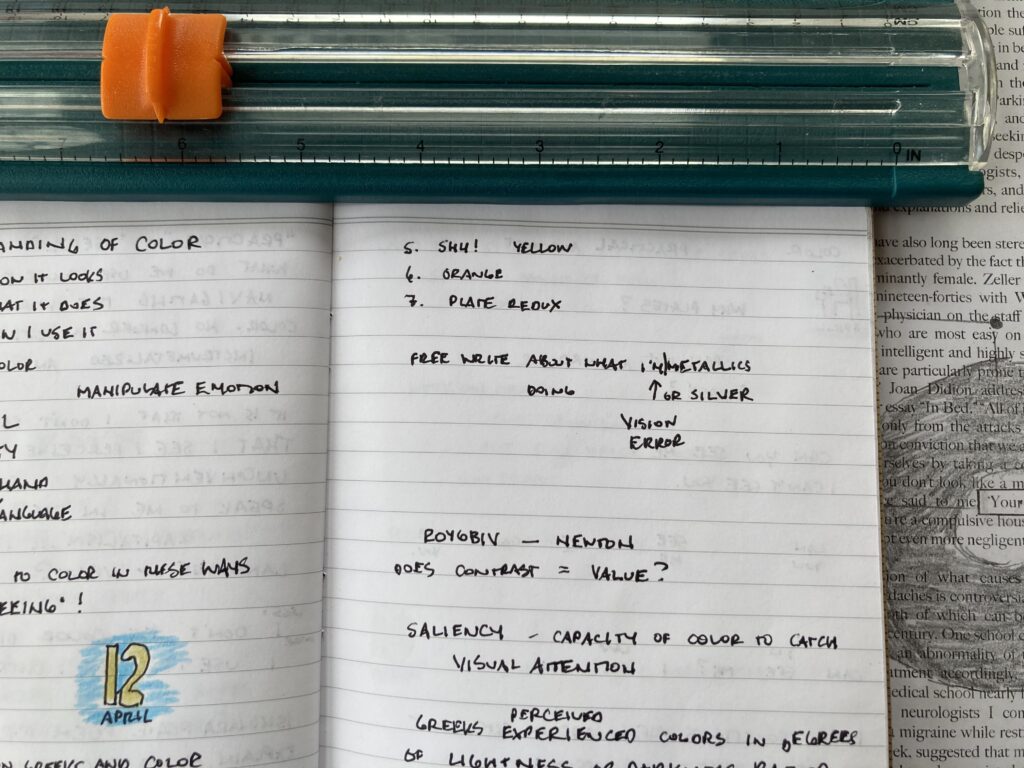 7 6 5 4 3 2 1 0 IN
ANDING OF COLOR
ON IT LOOKS
AT IT DOES
N I USE IT
OLOR
MANIPULATE EMOTION
L
TY
HAND
LANGUAGE
TO COLOR IN THESE WAYS
EEING"!
12
APRIL
N GREEKS AND COLOR
5. SHH! YELLOW
6. ORANGE
7. PLATE REDUX
FREE WRITE ABOUT WHAT I'M/METALLICS
DOING ↑ OR SILVER
VISION
ERROR
ROYGBIV — NEWTON
DOES CONTRAST = VALUE?
SALIENCY - CAPACITY OF COLOR TO CATCH
VISUAL ATTENTION
PERCEIVED
GREEKS EXPERIENCED COLORS IN DEGREES
OF LIGHTNESS OR DARKNESS RATHER
tion the
ple suf
in be
and
n the
arkin
, and
seekin
desp
ogists,
rs, and
explanations and relie
have also long been stere
exacerbated by the fact th
minantly female. Zeller
nineteen-forties with W
physician on the staff
who are most easy on
intelligent and highly s
are particularly prone t
Joan Didion, addres
essay "In Bed." "All of
only from the attacks
on conviction that we
rselves by taking a c
ou don't look like a m
e said to me. Your
u're a compulsive hous
ot even more negligen
ion of what causes
daches is controversia
th of which can b
century. One school
an abnormality of
atment accordingly.
edical school nearly
neurologists I con
a migraine while rest
ek, suggested that m